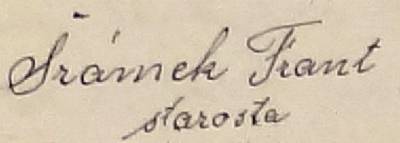 Šrámek Frant
starosta